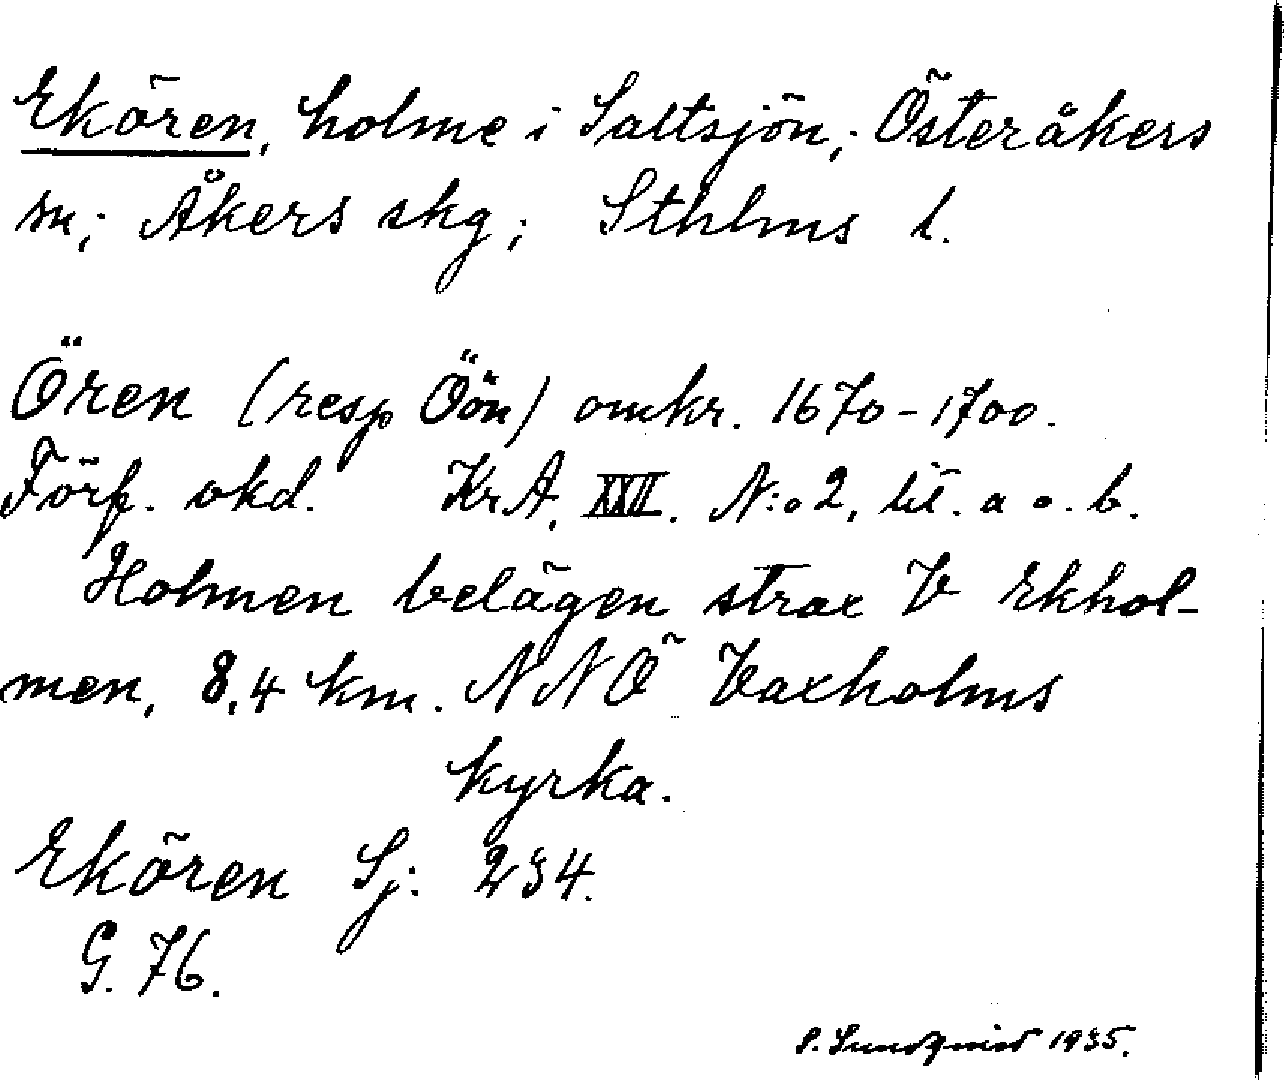 Ekören, holme i Saltsjön; Österåkers
sn; Åkers skg; Sthlms l.
Ören (resp Öön) omkr. 1670-1700.
Förf. okd. KrA, XXII. N:o 2, lit. a o. b.
Holmen belägen strax V Ekhol-
men, 8,4 km. NNÖ Vaxholms
kyrka.
Ekören Sj: 234.
G. 76.
S. Sundqvist 1935.